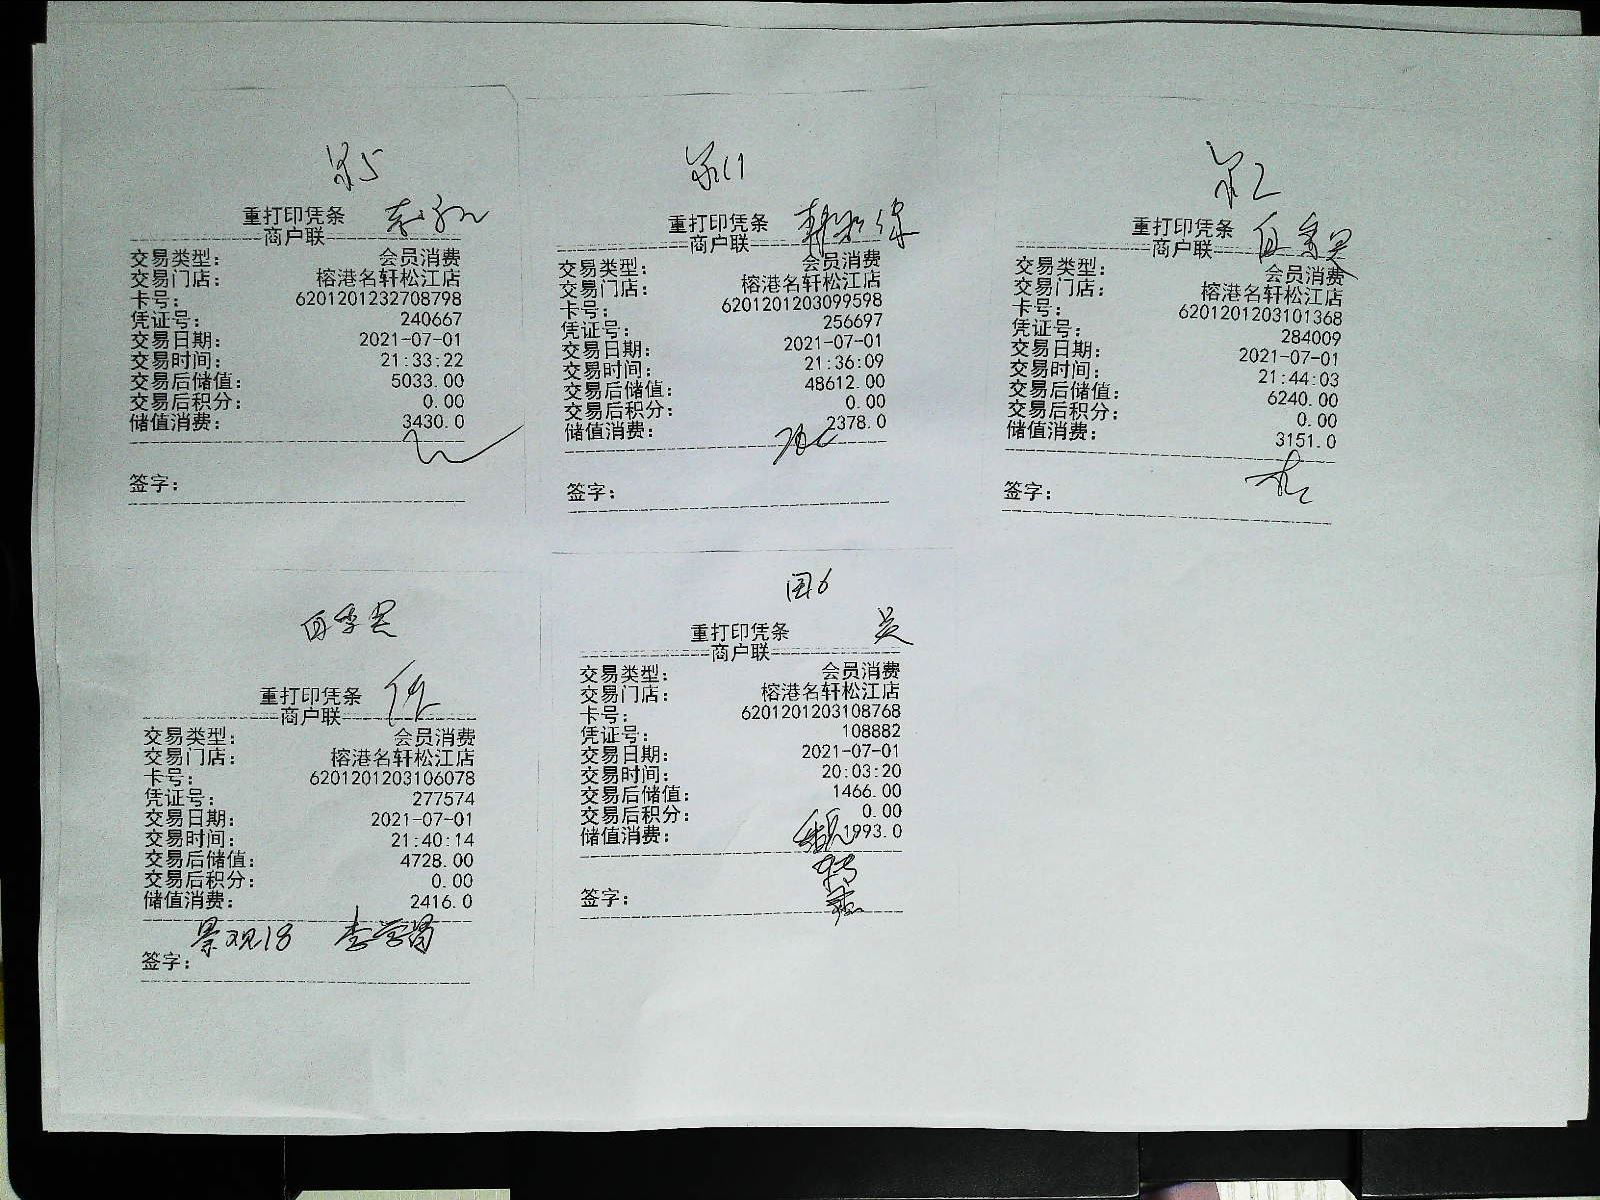 重打印凭条
商户联
交易类型: 会员消费
交易门店: 榕港名轩松江店
卡号: 6201201232708798
凭证号: 240667
交易日期: 2021-07-01
交易时间: 21:33:22
交易后储值: 5033.00
交易后积分: 0.00
储值消费: 3430.0
签字:
重打印凭条
商户联
交易类型: 会员消费
交易门店: 榕港名轩松江店
卡号: 6201201203099598
凭证号: 256697
交易日期: 2021-07-01
交易时间: 21:36:09
交易后储值: 48612.00
交易后积分: 0.00
储值消费: 2378.0
签字:
重打印凭条
商户联
交易类型: 会员消费
交易门店: 榕港名轩松江店
卡号: 6201201203101368
凭证号: 284009
交易日期: 2021-07-01
交易时间: 21:44:03
交易后储值: 6240.00
交易后积分: 0.00
储值消费: 3151.0
签字:
重打印凭条
商户联
交易类型: 会员消费
交易门店: 榕港名轩松江店
卡号: 6201201203106078
凭证号: 277574
交易日期: 2021-07-01
交易时间: 21:40:14
交易后储值: 4728.00
交易后积分: 0.00
储值消费: 2416.0
景观18
签字:
重打印凭条
商户联
交易类型: 会员消费
交易门店: 榕港名轩松江店
卡号: 6201201203108768
凭证号: 108882
交易日期: 2021-07-01
交易时间: 20:03:20
交易后储值: 1466.00
交易后积分: 0.00
储值消费: 1993.0
签字: